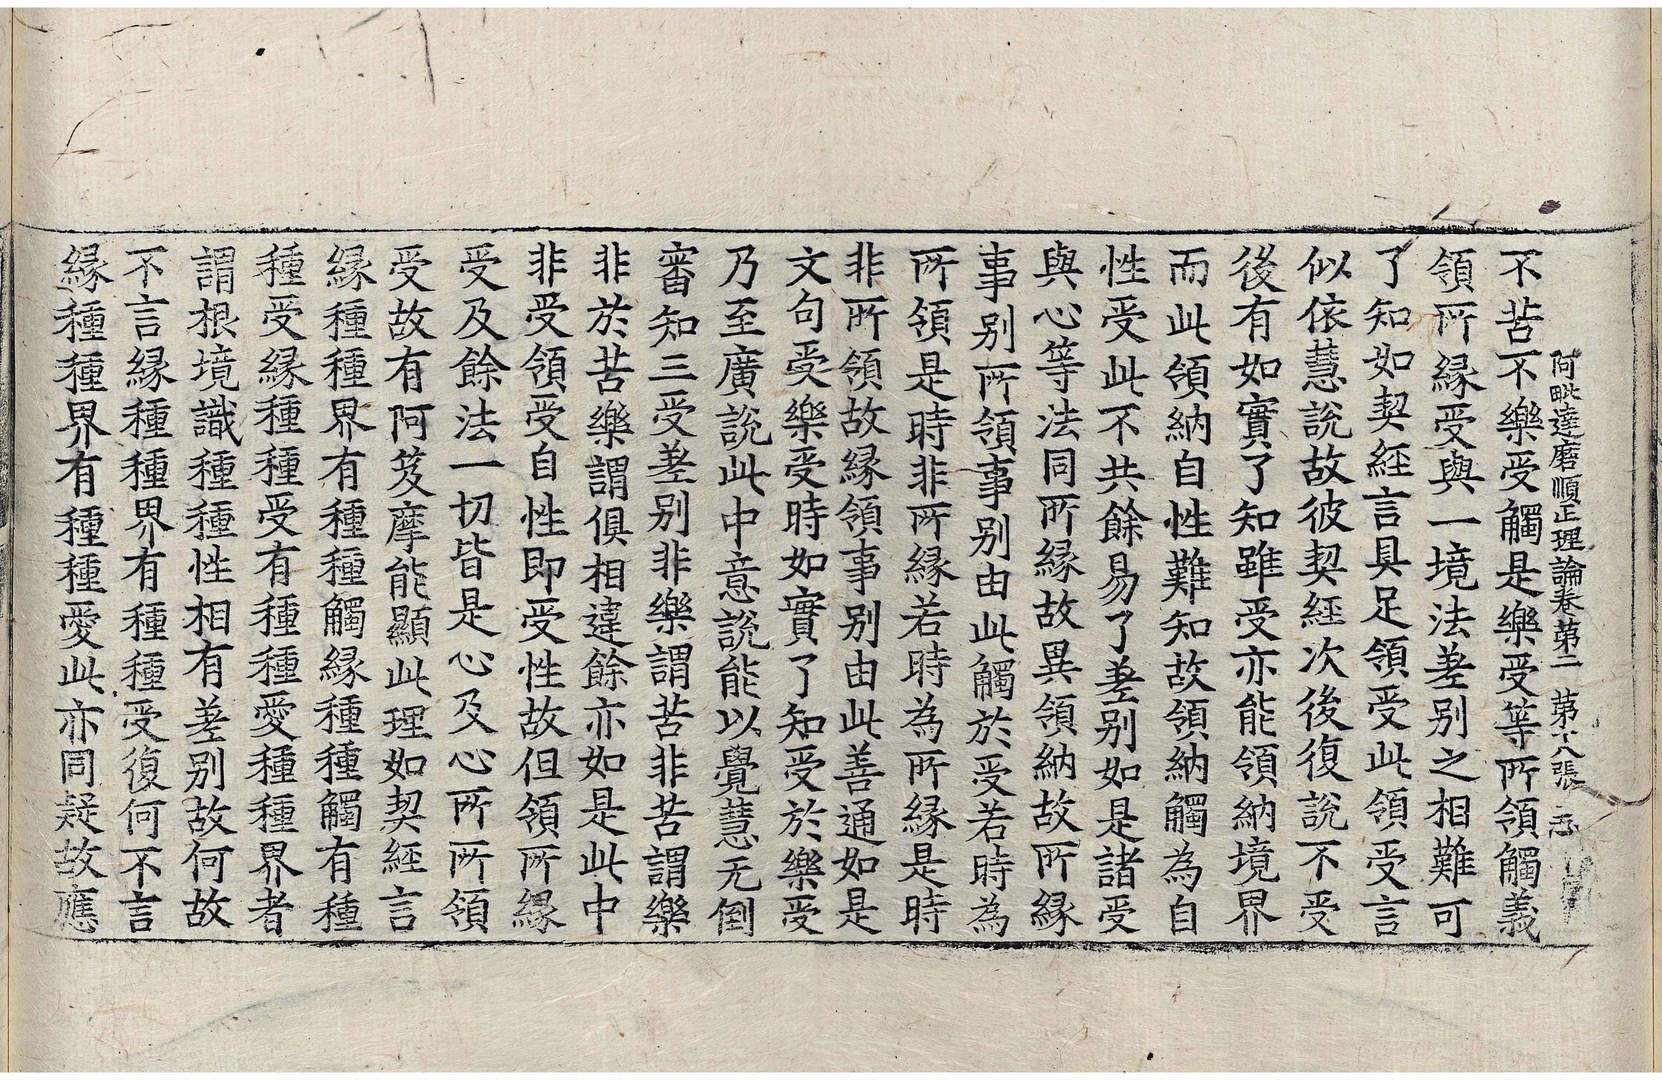 阿毗達磨順正理論卷第二　第十八張　志
不苦不樂受觸是樂受等所領觸義
領所緣受與一境法差別之相難可
了知如契經言具足領受此領受言
似依慧說故彼契經次後復說不受
後有如實了知雖受亦能領納境界
而此領納自性難知故領納觸為自
性受此不共餘易了差別如是諸受
與心等法同所緣故異領納故所緣
事別所領事別由此觸於受若時為
所領是時非所緣若時為所緣是時
非所領故緣領事別由此善通如是
文句受樂受時如實了知受於樂受
乃至廣說此中意說能以覺慧无倒
審知三受差別非樂謂苦非苦謂樂
非於苦樂謂俱相違餘亦如是此中
非受領受自性即受性故但領所緣
受及餘法一切皆是心及心所所領
受故有阿笈摩能顯此理如契經言
緣種種界有種種觸緣種種觸有種
種受緣種種受有種種愛種種界者
謂根境識種種性相有差別故何故
不言緣種種界有種種受復何不言
緣種種界有種種愛此亦同疑故應